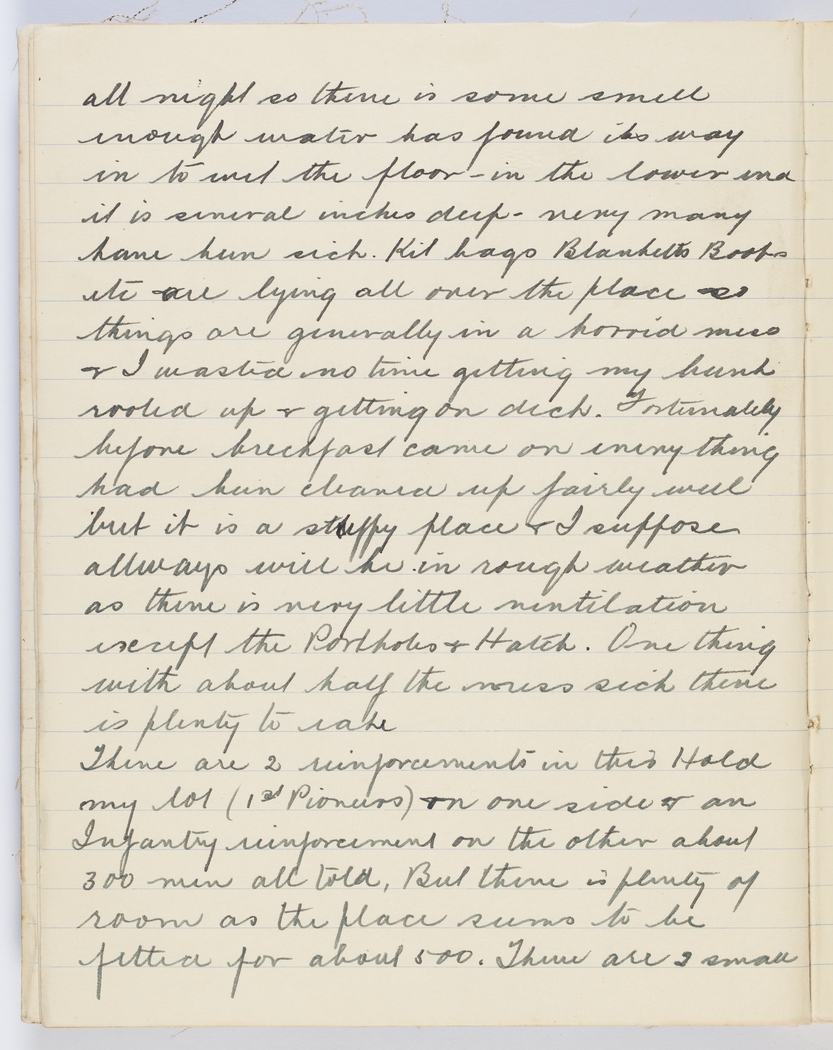 all night so there is some smell
enough water has found its way
in to wet the floor - in the lower end
it is several inches deep - very many
have been sick. Kit bags Blanketts Boots
etc are lying all over the place so
things are generally in a horrid mess
& I wasted no time getting my bunk
rooled up & getting on deck. Fortunately
before breckfast came on everything
had been cleaned up fairly well
but it is a stuffy place & I suppose
allways will be in rough weather
as there is very little ventilation
except the Portholes & Hatch. One thing
with about half the mess sick there
is plenty to eate
There are 2 reinforcements in this Hold
my lot (1st Pioneers) on one side & an
Infantry reinforcement on the other about
300 men all told, But there is plenty of
room as the place seems to be
fitted for about 500. There are 2 small